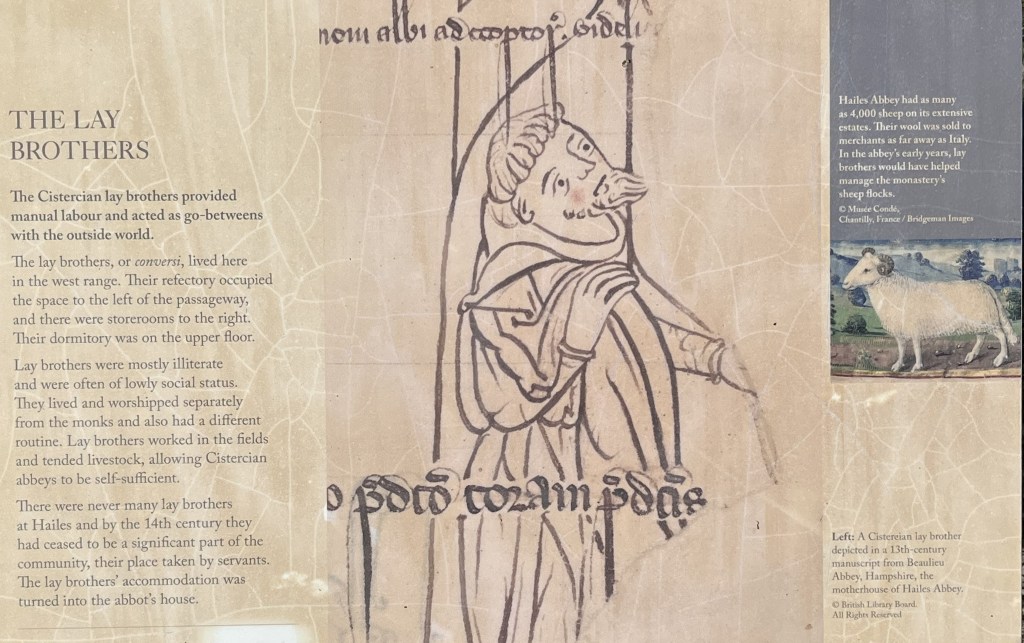 THE LAY
BROTHERS
The Cistercian lay brothers provided
manual labour and acted as go-betweens
with the outside world.
The lay brothers, or conversi, lived here
in the west range. Their refectory occupied
the space to the left of the passageway,
and there were storerooms to the right.
Their dormitory was on the upper floor.
Lay brothers were mostly illiterate
and were often of lowly social status.
They lived and worshipped separately
from the monks and also had a different
routine. Lay brothers worked in the fields
and tended livestock, allowing Cistercian
abbeys to be self-sufficient.
There were never many lay brothers
at Hailes and by the 14th century they
had ceased to be a significant part of the
community, their place taken by servants.
The lay brothers' accommodation was
turned into the abbot's house.
albi ad
coram
Hailes Abbey had as many
as 4,000 sheep on its extensive
estates. Their wool was sold to
merchants as far away as Italy.
In the abbey's early years, lay
brothers would have helped
manage the monastery's
sheep flocks.
© Musée Condé,
Chantilly, France / Bridgeman Images
Left: A Cistercian lay brother
depicted in a 13th-century
manuscript from Beaulieu
Abbey, Hampshire, the
motherhouse of Hailes Abbey.
© British Library Board.
All Rights Reserved